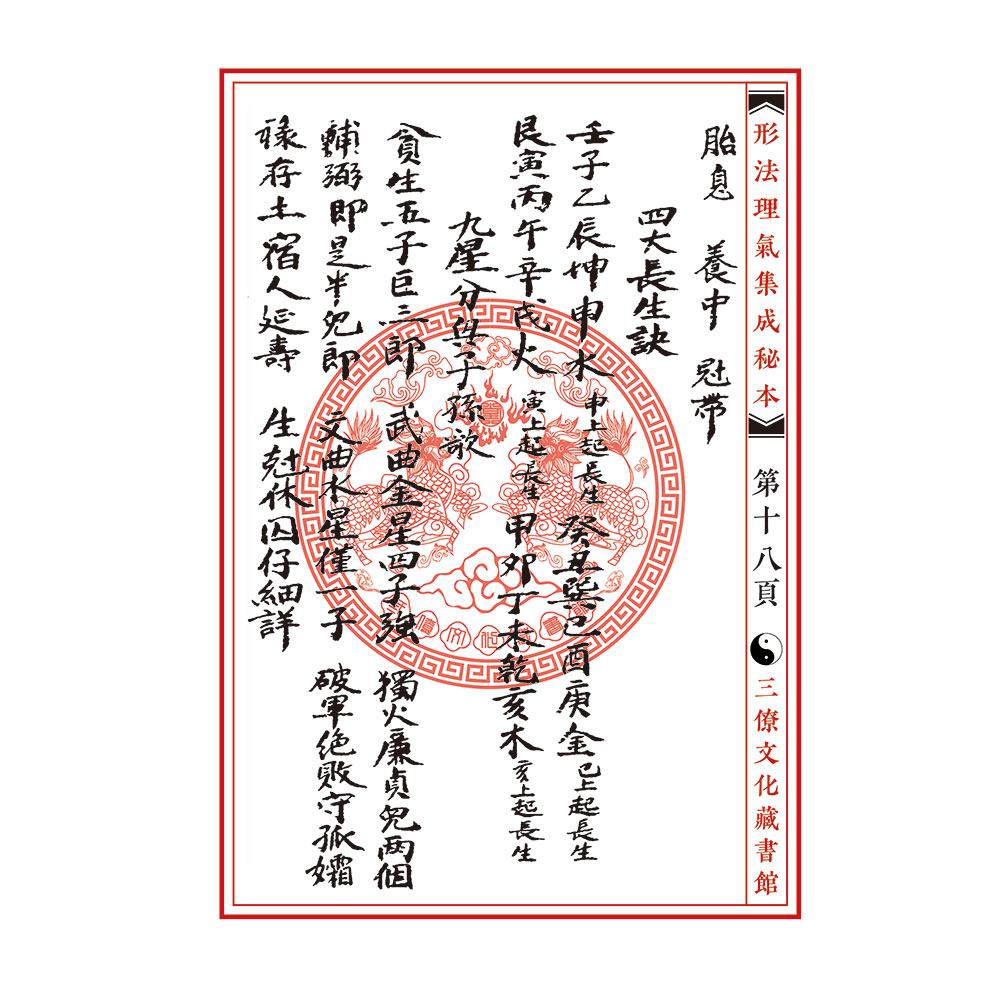 《形法理氣集成秘本》 第十八頁 三僚文化藏書館
胎息 養中 冠帶
四大長生訣
壬子乙辰坤申水 申上起長生 癸丑巽巳酉庚金 巳上起長生
艮寅丙午辛戌火 寅上起長生 甲卯丁未乾亥木 亥上起長生
九星分與子孫歌
貪生五子巨三郎 武曲金星四子強 獨火廉貞兒兩個
輔弼即是半兒郎 文曲水星僅一子 破軍絕敗守孤孀
祿存土宿人延壽 生尅休囚仔細詳